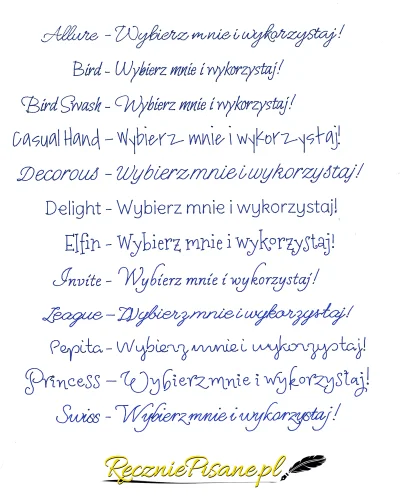 Allure - Wybierz mnie i wykorzystaj!
Bird - Wybierz mnie i wykorzystaj!
Bird Swash - Wybierz mnie i wykorzystaj!
Casual Hand - Wybierz mnie i wykorzystaj!
Decorous - Wybierz mnie i wykorzystaj!
Delight - Wybierz mnie i wykorzystaj!
Elfin - Wybierz mnie i wykorzystaj!
Invite - Wybierz mnie i wykorzystaj!
League - Wybierz mnie i wykorzystaj!
Pepita - Wybierz mnie i wykorzystaj!
Princess - Wybierz mnie i wykorzystaj!
Swiss - Wybierz mnie i wykorzystaj!
RęczniePisane.pl